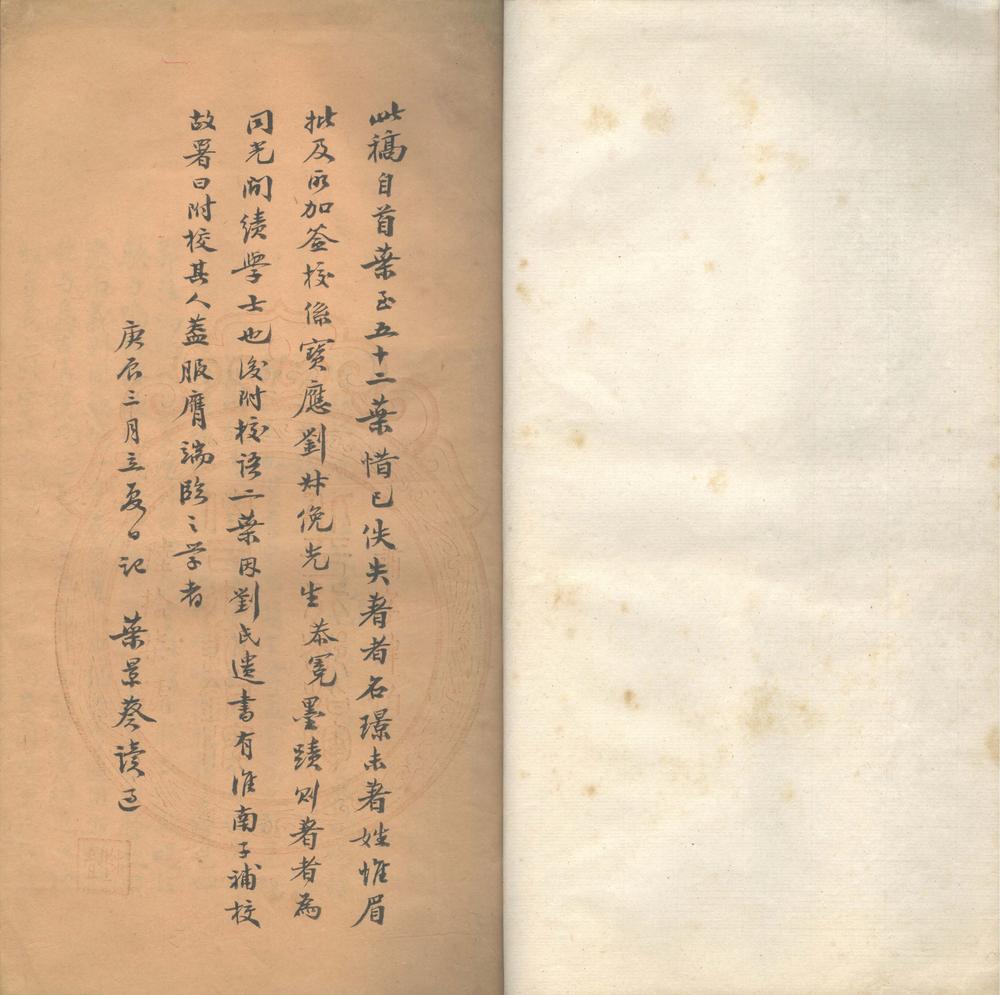 此稿自首葉至五十二葉惜已佚失著者名璟未著姓惟眉
批及所加签校係寳應劉叔俛先生恭冕墨蹟則著者為
同光間績學士也後附校語二葉因劉氏遺書有淮南子補校
故署曰附校其人蓋服膺端臨之学者
庚辰三月立夏日記 葉景葵讀过